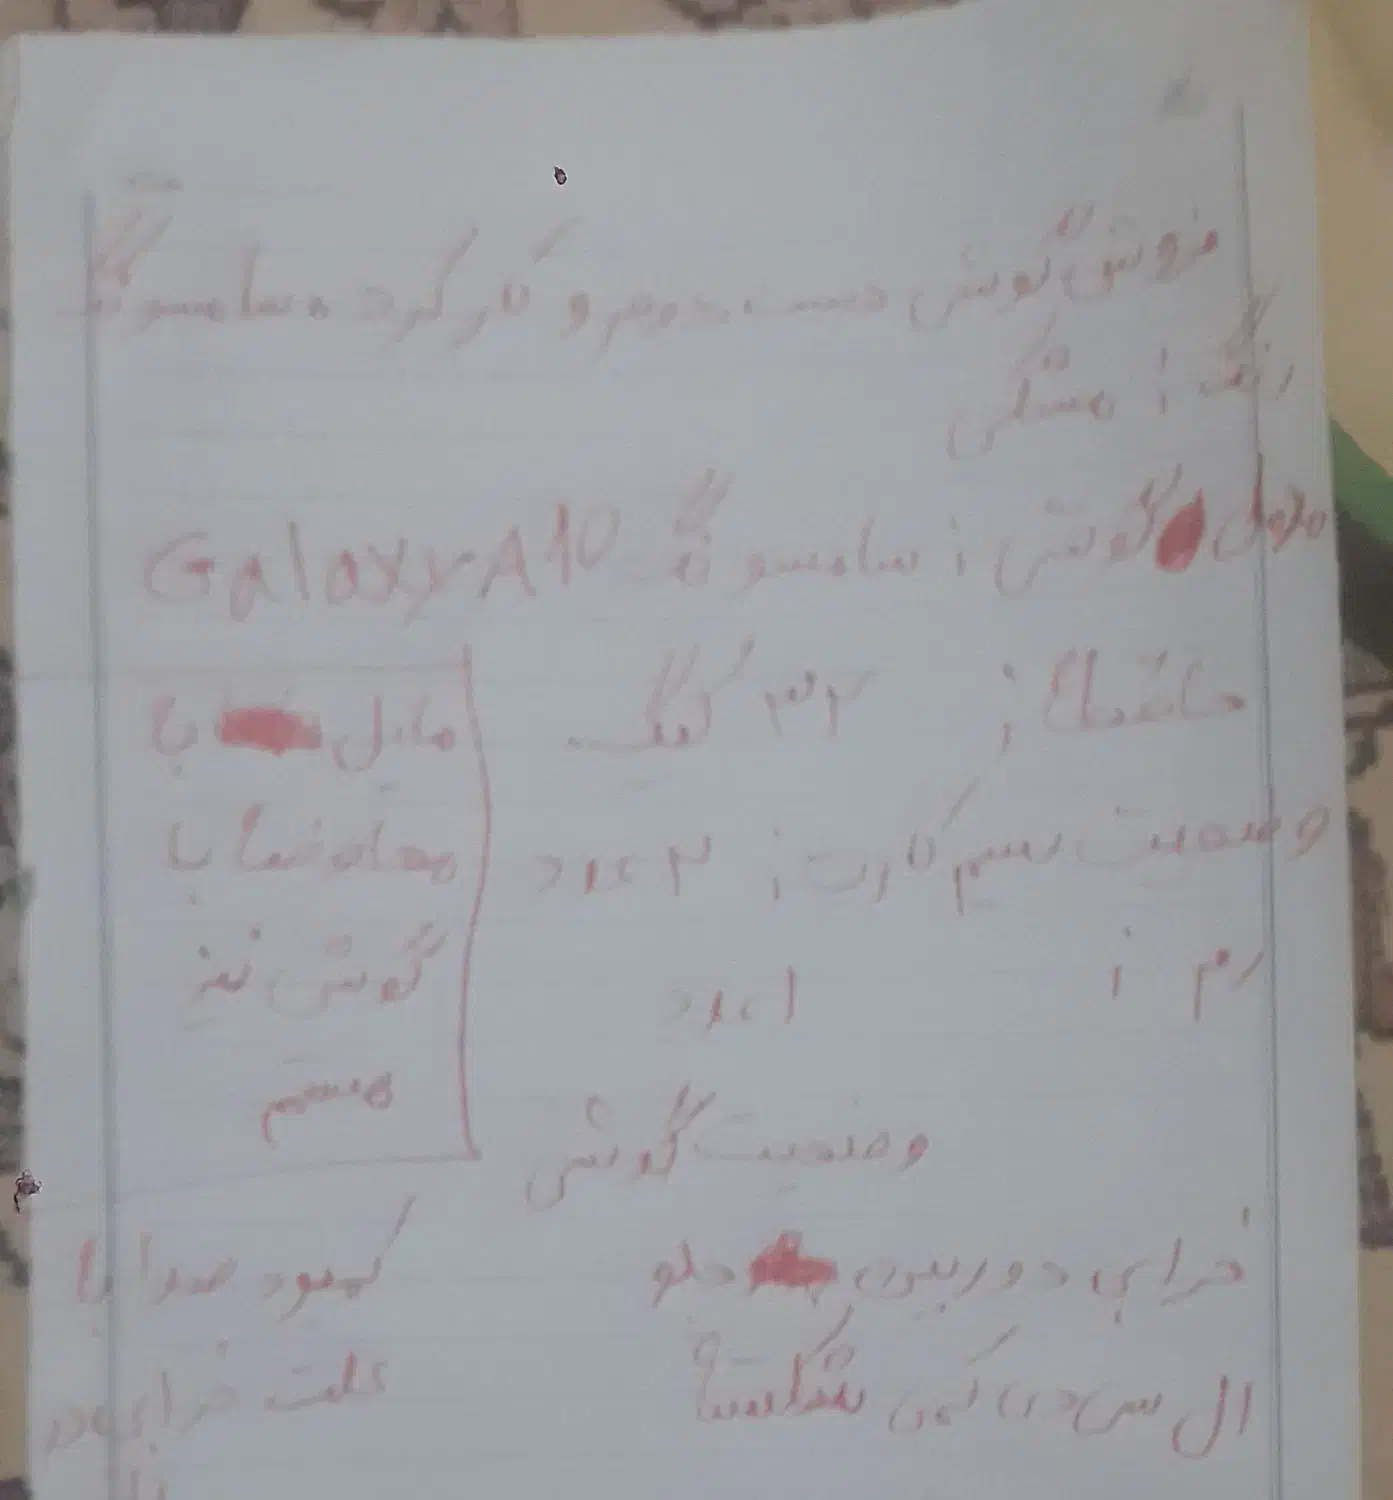 فروش گوشی دست دوم و کارکرده سامسونگ
رنگ : مشکی
مدل گوشی : سامسونگ Galaxy A10
حافظه : ۳۲ گیگ
وضعیت سیم کارت : ۲ عدد
رم : ۱ عدد
مایل به
معاوضه با
گوشی نیز
هستم
وضعیت گوشی
خرابی دوربین جلو
ال سی دی کمی شکسته
کمبود صدا به
علت خرابی